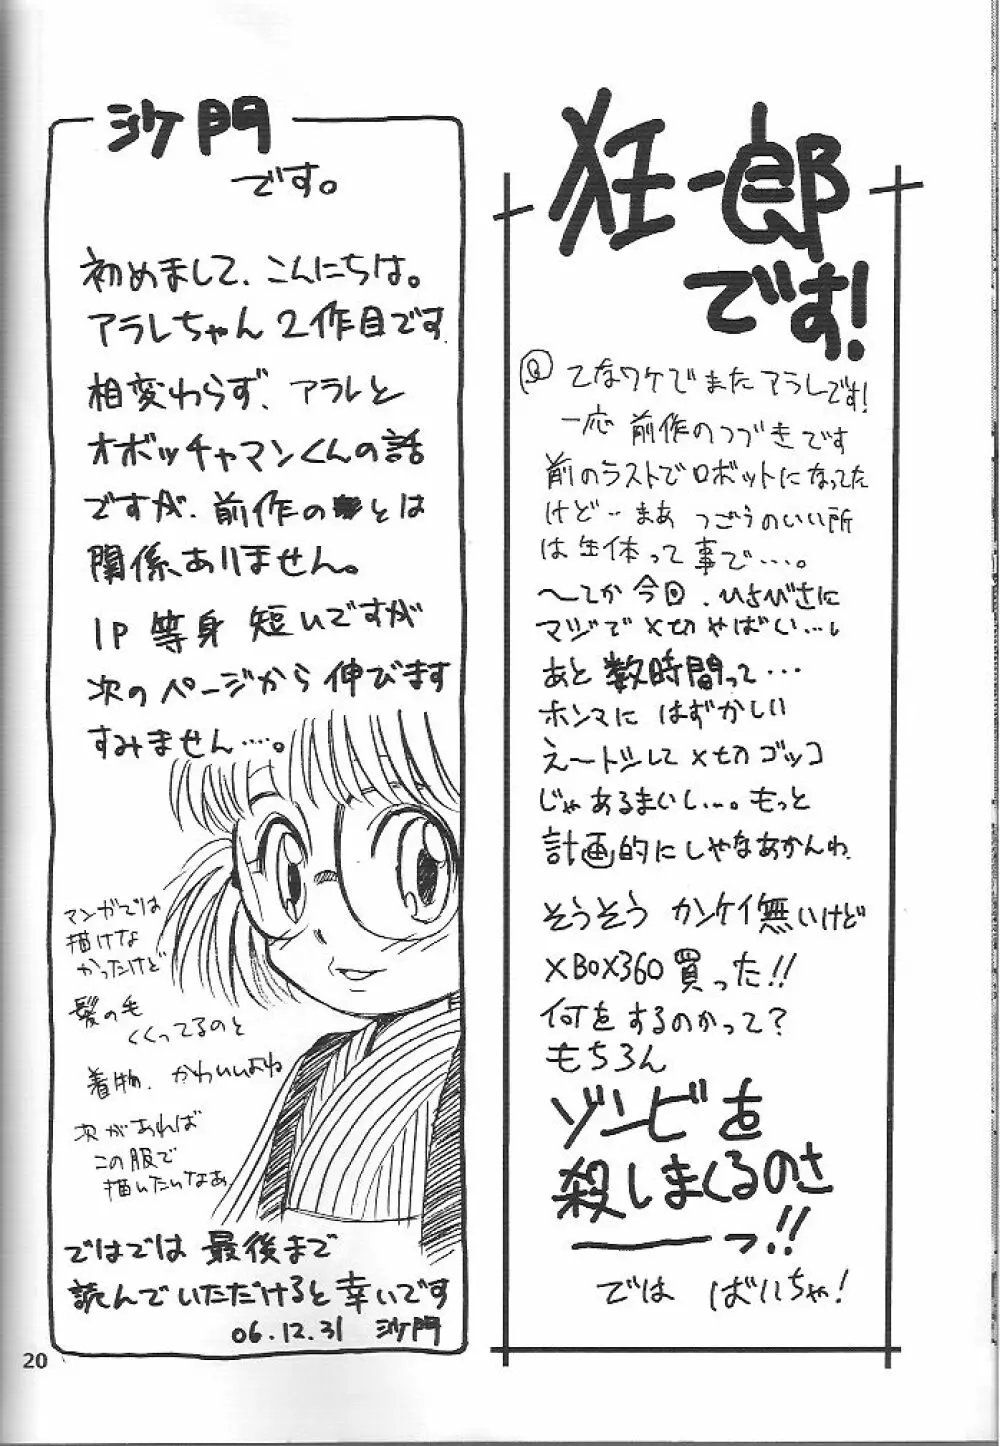 狂一郎
です!
てなワケでまたアラレです!
一応 前作のつづきです
前のラストでロボットになってた
けど‥まあ つごうのいい所
は生体って事で‥‥。
〜てか今回、ひさびさに
マジで〆切やばい‥‥。
あと数時間って‥‥
ホンマに はずかしい
え〜トシして〆切ゴッコ
じゃあるまいし‥‥。もっと
計画的にしやなあかんわ
そうそう カンケイ無いけど
XBOX360買った!!
何をするのかって?
もちろん
ゾンビを
殺しまくるのさ
ーっ!!
では ばいちゃ!
沙門
です。
初めまして、こんにちは。
アラレちゃん2作目です
相変わらず、アラレと
オボッチャマンくんの話
ですが、前作のとは
関係ありません。
1P 等身 短いですが
次のページから伸びます
すみません‥‥。
マンガでは
描けな
かったけど
髪の毛
くくってるのと
着物、かわいいよね
次があれば
この服で
描いたいなぁ
ではでは 最後まで
読んでいただけると幸いです
06.12.31 沙門
20